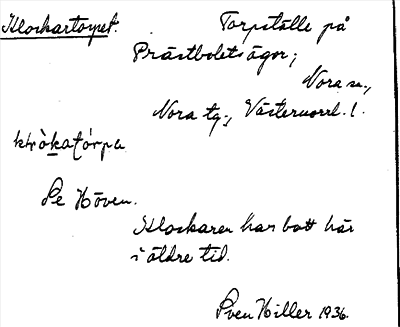 Klockartorpet. Torpställe på
Prästboletsägor;
Nora sn.,
Nora tg., Västernorrl. l.
klọ̀katórpa
Se Höven.
Klockaren har bott här
i äldre tid.
Sven Hiller 1936.